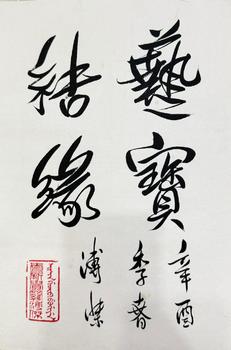 藝寶
結緣
辛酉
季春
溥傑